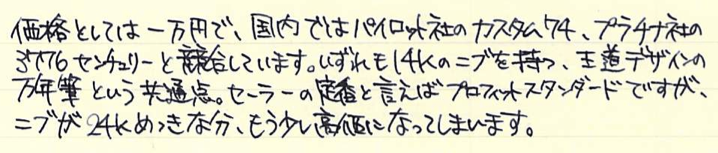 価格としては一万円で、国内ではパイロット社のカスタム74、プラチナ社の
#3776センチュリーと競合しています。いずれも14Kのニブを持つ、王道デザインの
万年筆という共通点。セーラーの定番と言えばプロフィットスタンダードですが、
ニブが24Kめっきな分、もう少し高価になってしまいます。